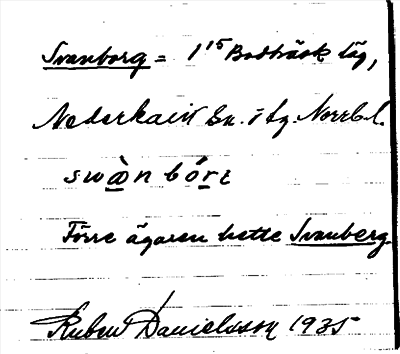 Svanborg = 1¹⁵ Bodträsk låg,
Nederkalix Sn. i Norrb. l.
swàn bórɩ
Förre ägaren hette Svanberg
Ruben Danielsson 1935